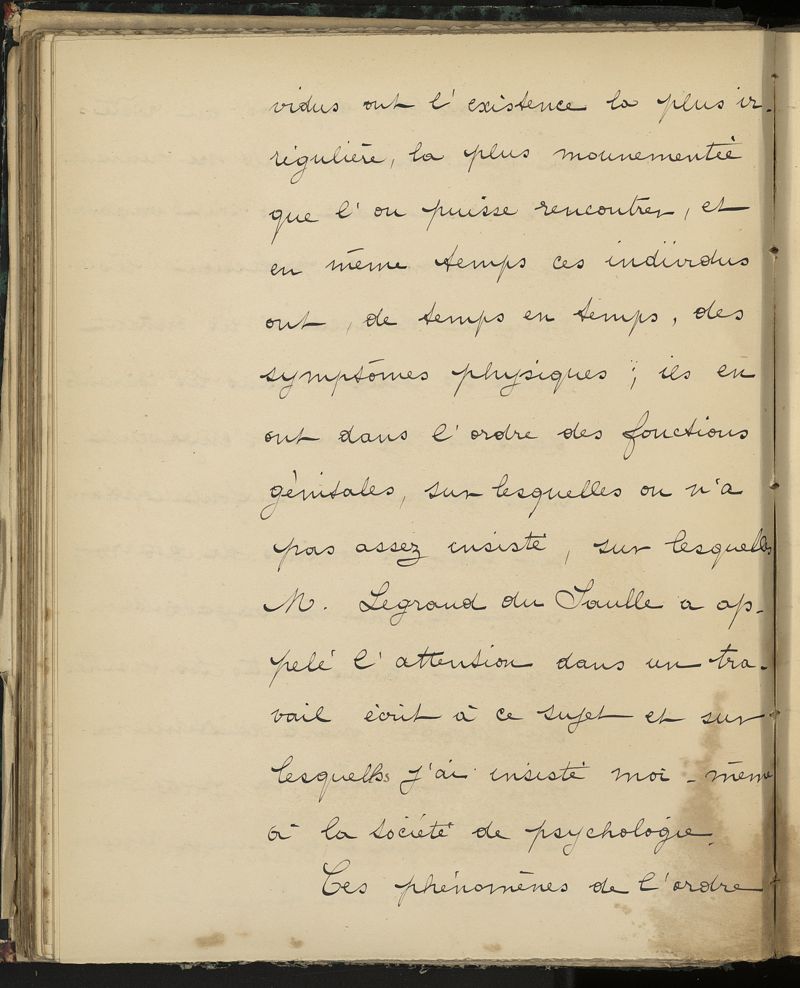 vidus ont l'existence la plus ir-
régulière, la plus mouvementée
que l'on puisse rencontrer, et
en même temps ces individus
ont, de temps en temps, des
symptômes physiques ; ils en
ont dans l'ordre des fonctions
génitales, sur lesquelles on n'a
pas assez insisté, sur lesquelles
M. Legrand du Saulle a ap-
pelé l'attention dans un tra-
vail écrit à ce sujet et sur
lesquelles j'ai insisté moi-même
à la société de psychologie.
Ces phénomènes de l'ordre